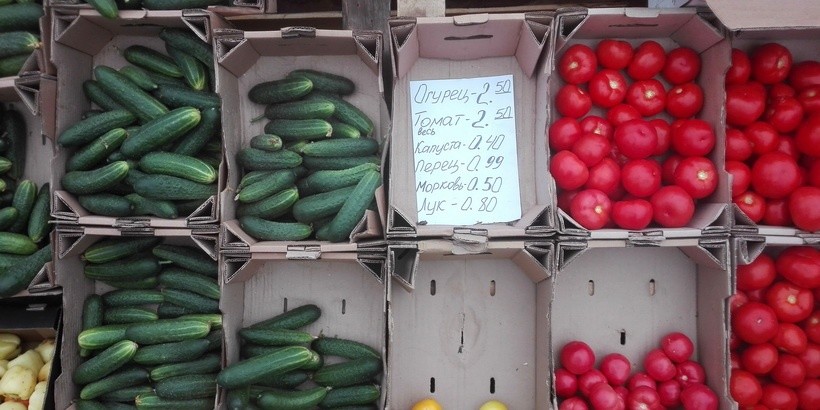 Огурец-2.50
Томат-2.50
весь
Капуста-0.40
Перец-0.99
Морковь-0.50
Лук-0.80